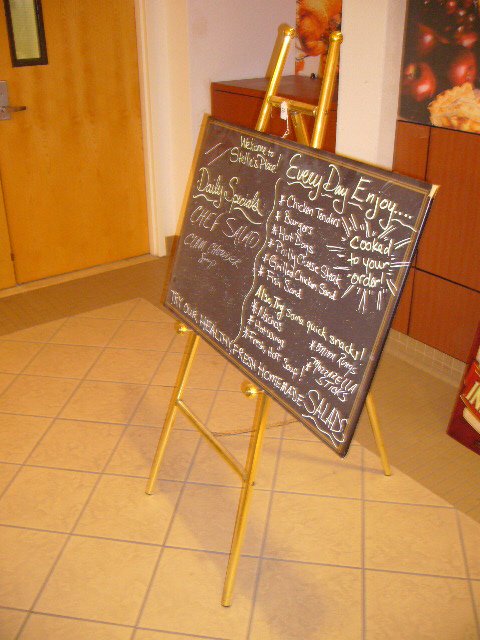 Welcome to
Stolle's Place!
Daily Specials
CHEF SALAD
CLAM CHOWDER
Soup
EVERY DAY ENJOY....
* Chicken Tenders
* Burgers
* Hot Dogs
* Philly Cheese Steak
* Grilled Chicken Sand
* Fish Sand
Cooked
to your
order!
Also Try Some quick snacks!
* Nachos
* Fresh Hot Soup!
* Onion Rings
* MOZZARELLA
STICKS
TRY OUR HEALTHY, FRESH HOMEMADE SALADS